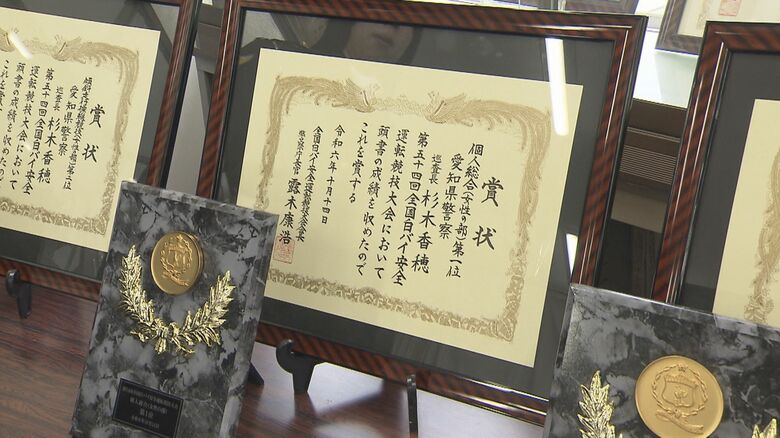 賞状
傾斜走行操縦競技(女性の部)第一位
愛知県警察
巡査長 杉木香穂
第五十四回全国白バイ安全
運転競技大会において
頭書の成績を収めたので
これを賞
賞状
個人総合(女性の部)第一位
愛知県警察
巡査長 杉木香穂
第五十四回全国白バイ安全
運転競技大会において
頭書の成績を収めたので
これを賞する
令和六年十月十四日
全国白バイ安全運転競技大会会長
警察庁長官 露木康浩
第1位